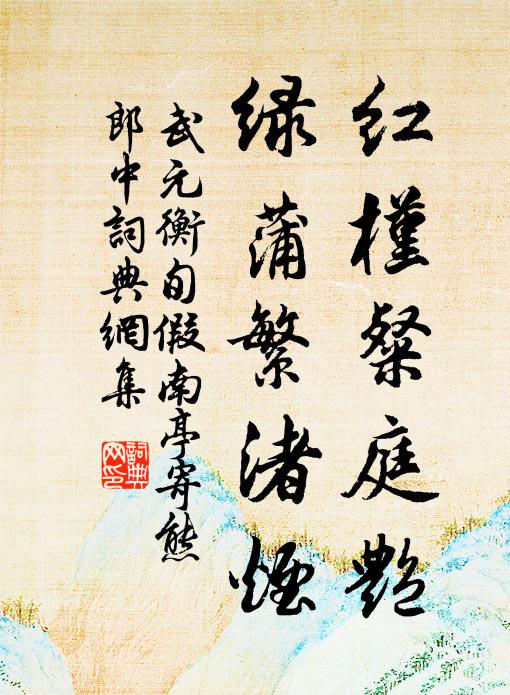 红槿粲庭艷
绿蒲繁渚煙
武元衡旬假南亭寄熊
郎中詞典網集
詞典网印